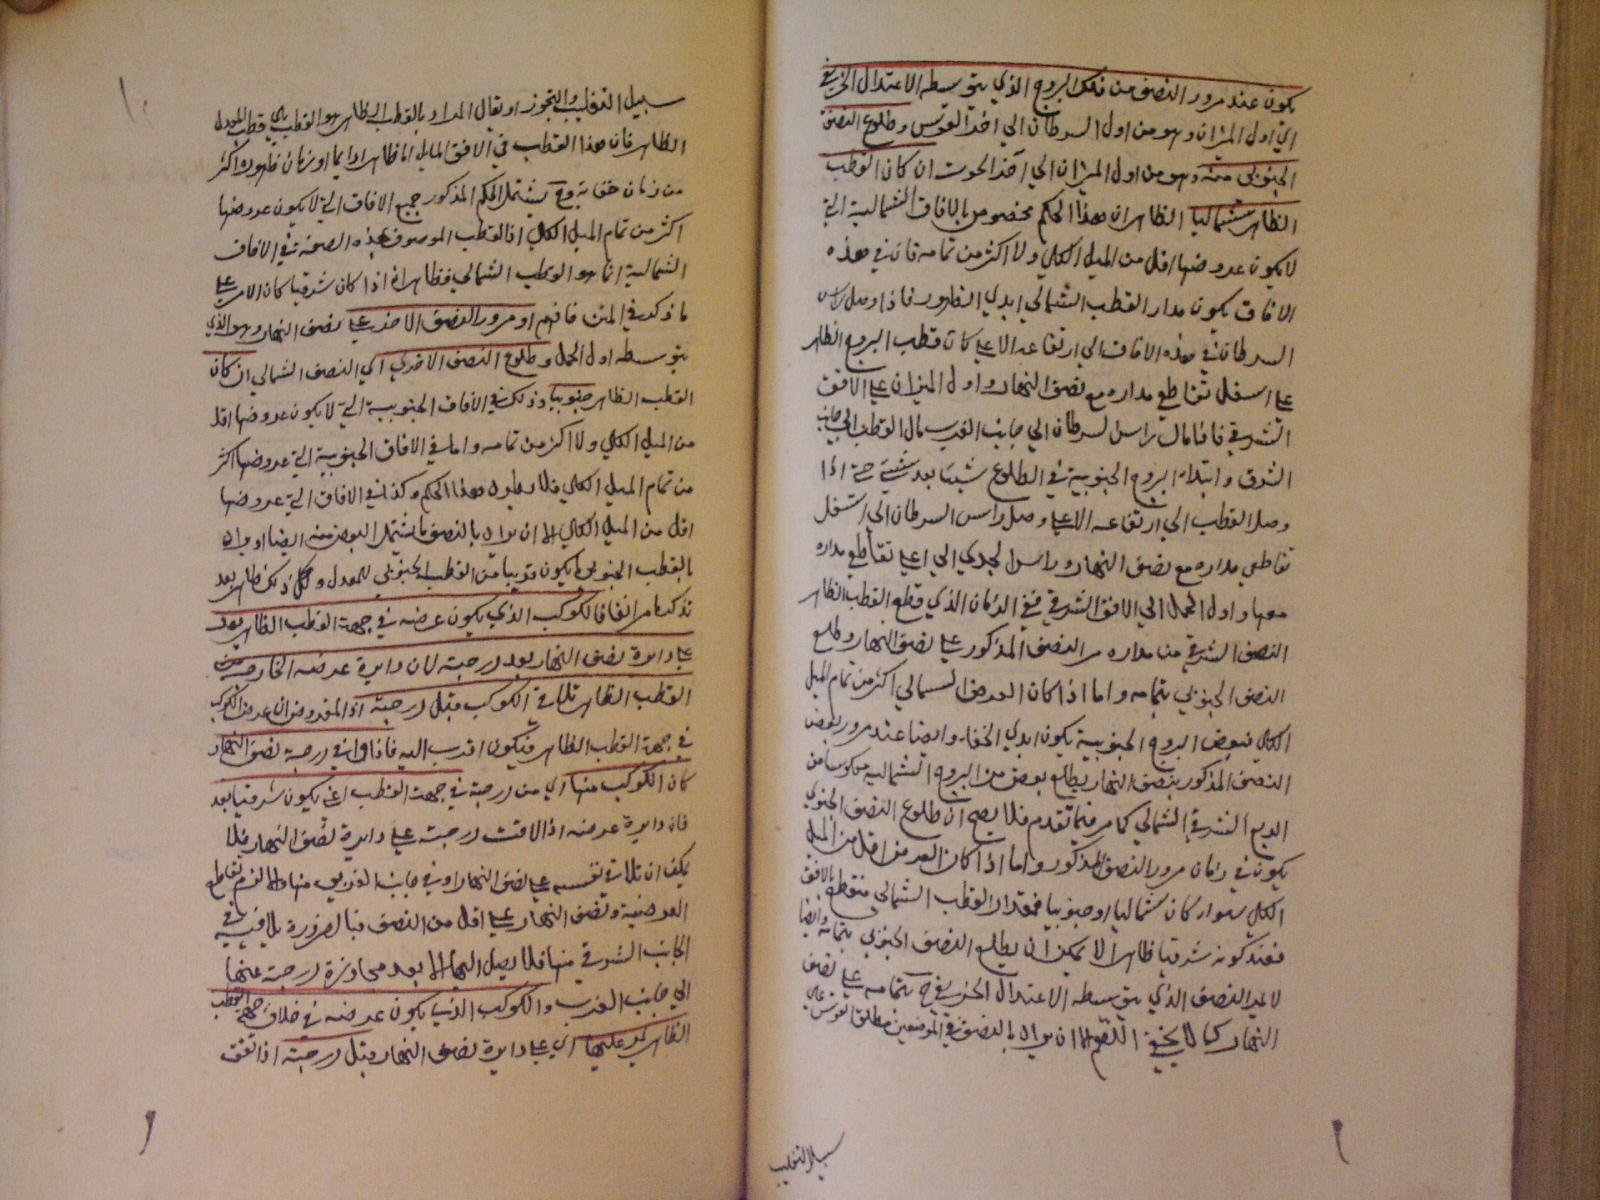 يكون عند مرور النصف من فلك البروج الذي يتوسطه الاعتدال الخريفي
اي اول الميزان وهو من اول السرطان الي اخر القوس وطلوع النصف
الجنوبي منه وهو من اول الميزان الي آخر الحوت ان كان القطب
الظاهر شماليا الظاهر ان هذا الحكم مخصوص بالافاق الشمالية التي
لا يكون عروضها اقل من الميل الكلي ولا اكثر من تمامه فان في هذه
الافاق يكون مدار القطب الشمالي ابدي الظهور فاذا وصل راس
السرطان في هذه الافاق الي ارتفاعه الاعلي كان قطب البروج الظاهر
علي اسفل تقاطع مداره مع نصف النهار واول الميزان علي الافق
الشرقي فاذا مال راس السرطان الي جانب الغرب مال القطب الي جانب
الشرق وابتداء البروج الجنوبية في الطلوع شيئا بعد شيئ حتي اذا
وصل القطب الي ارتفاعه الاعلي وصل راس السرطان الي اسفل
تقاطعي مداره مع نصف النهار وراس الجدي الي اعلي تقاطعي مداره
معها واول الحمل الي الافق الشرقي ففي الزمان الذي قطع القطب الظاهر
النصف الشرقي من مداره مر النصف المذكور علي نصف النهار وطلع
النصف الجنوبي بتمامه واما اذا كان العرض الشمالي اكثر من تمام الميل
الكلي فبعض البروج الجنوبية يكون ابدي الخفاء وايضا عند مرور بعض
النصف المذكور بنصف النهار يطلع بعض من البروج الشمالية معكوسا من
الربع الشرقي الشمالي كما مر فيما تقدم فلا يصح ان طلوع النصف الجنوبي
يكون في زمان مرور النصف المذكور واما اذا كان العرض اقل من الميل
الكلي سواء كان شماليا او جنوبيا فمقدار القطب الشمالي منقطع بالافق
فعند كونه شرقيا ظاهرا لا يمكن ان يطلع النصف الجنوبي بتمامه وايضا
لا يمر النصف الذي يتوسطه الاعتدال الخريفي ح بتمامه علي نصف
النهار كما لا يخفي اللهم الا ان يراد بالنصف في الموضعين مطلق القوس علي
سبيل التغليب
سبيل التغليب والتجوز او يقال المراد بالقطب الظاهر هو القطب الذي يلي قطب المعدل
الظاهر فان هذا القطب في الافق المايل اما ظاهر دايما او زمان ظهوره اكثر
من زمان خفائه وح يشتمل الحكم المذكور جميع الافاق التي لا يكون عروضها
اكثر من تمام الميل الكلي اذ القطب الموصوف بهذه الصفة في الافاق
الشمالية انما هو القطب الشمالي فظاهر انه اذا كان شرقيا كان الامر علي
ما ذكر في المتن فافهم او مرور النصف الاخر علي نصف النهار وهو الذي
يتوسطه اول الحمل وطلوع النصف الاخر اي النصف الشمالي ان كان
القطب الظاهر جنوبيا وذلك في الافاق الجنوبية التي لا يكون عروضها اقل
من الميل الكلي ولا اكثر من تمامه واما في الافاق الجنوبية التي عروضها اكثر
من تمام الميل الكلي فلا يطرد هذا الحكم وكذا في الافاق التي عروضها
اقل من الميل الكلي الا ان يراد بالنصف ما يشتمل البعض منه ايضا او يراد
بالقطب الجنوبي ما يكون قريبا من القطب الجنوبي للمعدل وكل ذلك ظاهر بعد
تذكر ما مر انفا فالكوكب الذي يكون عرضه في جهة القطب الظاهر يمر
علي دايرة نصف النهار بعد درجته لان دايرة عرضه الخارجة من
القطب الظاهر تلاقي الكوكب قبل درجته اذ المفروض ان عرض الكوكب
في جهة القطب الظاهر فيكون اقرب اليه فاذا وافي درجته نصف النهار
كان الكوكب منها اي من درجته في جهة القطب اعني يكون شرقيا بعد
فان دايرة عرضه اذا لاقت درجته علي دايرة نصف النهار فلا
يمكن ان تلاقي نفسه علي نصف النهار او في جانب الغربي منها والا لزم تقاطع
العرضية ونصف النهار علي اقل من النصف فبالضرورة يلاقيه في
الجانب الشرقي منها فلا يصل اليها الا بعد مجاوزة درجته عنها
الي جانب الغرب والكوكب الذي يكون عرضه في خلاف جهة القطب
الظاهر يمر عليها اي علي دايرة نصف النهار قبل درجته اذ القت